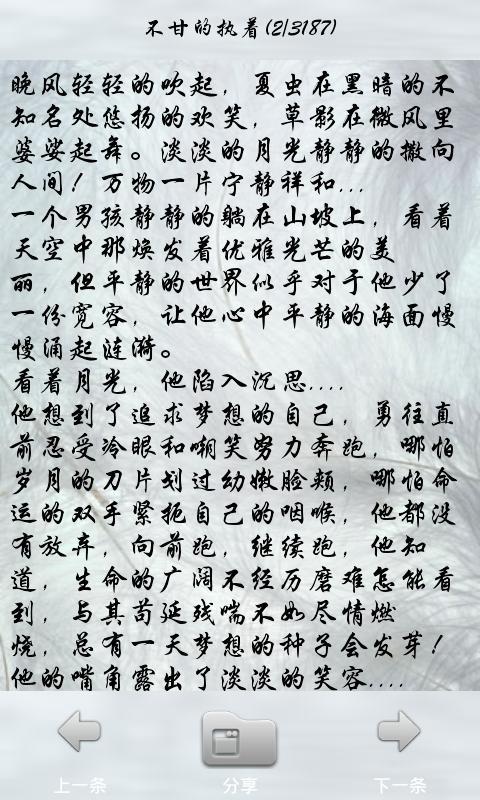 不甘的执着(2/3187)
晚风轻轻的吹起，夏虫在黑暗的不
知名处悠扬的欢笑，草影在微风里
婆娑起舞。淡淡的月光静静的撒向
人间！万物一片宁静祥和...
一个男孩静静的躺在山坡上，看着
天空中那焕发着优雅光芒的美
丽，但平静的世界似乎对于他少了
一份宽容，让他心中平静的海面慢
慢涌起涟漪。
看着月光，他陷入沉思....
他想到了追求梦想的自己，勇往直
前忍受冷眼和嘲笑努力奔跑，哪怕
岁月的刀片划过幼嫩脸颊，哪怕命
运的双手紧扼自己的咽喉，他都没
有放弃，向前跑，继续跑，他知
道，生命的广阔不经历磨难怎能看
到，与其苟延残喘不如尽情燃
烧，总有一天梦想的种子会发芽！
他的嘴角露出了淡淡的笑容....
上一条
分享
下一条